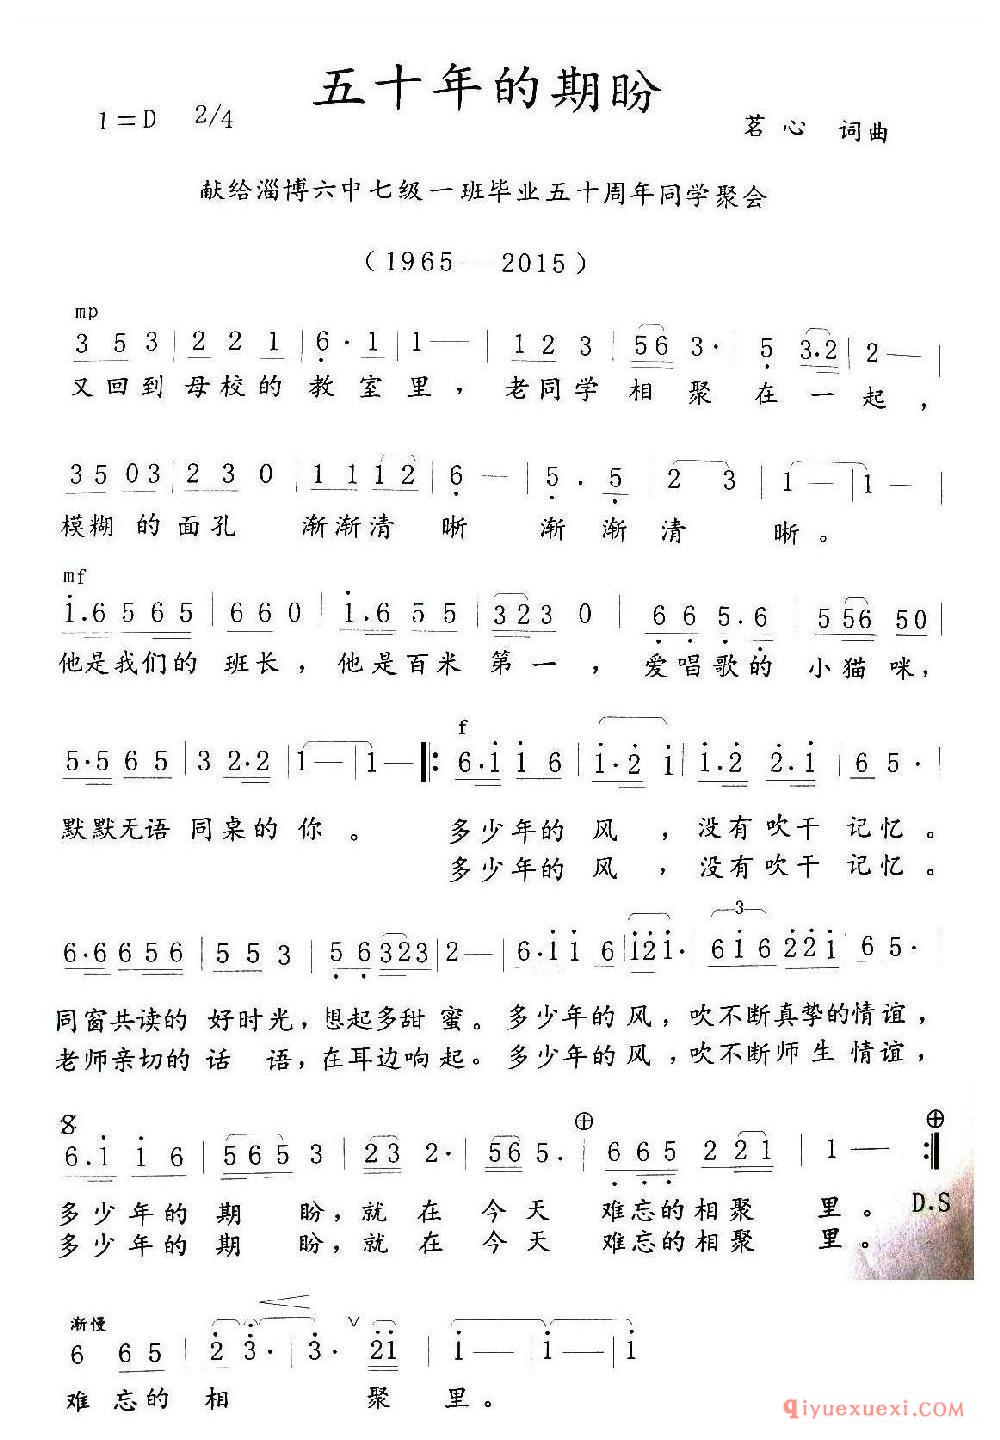 五十年的期盼
1=D 2/4 茗心 词曲
献给淄博六中七级一班毕业五十周年同学聚会
(1965 2015)
mp
3 5 3 | 2 2 1 | 6 · 1 | 1 — | 1 2 3 | 56 3 · 5 3.2 | 2 — |
又回到 母校的 教室里，老同学 相聚 在一起，
35 03 | 2 3 0 | 1 1 12 | 6 — | 5 . 5 | 2 3 | 1 — | 1 — |
模糊 的面孔 渐渐清 晰 渐 渐清 晰。
mf
1.6 5 65 | 66 0 | 1.6 55 | 323 0 | 6 6 5.6 5 56 50 |
他是我们的 班长，他是百米 第一，爱唱歌的 小猫 咪，
5·5 65 | 3 2·2 | 1 — | 1 — ‖: f 6·1 16 | 1·2 1 | 1.2 2.1 | 65 · |
默默无语 同桌的你。 多少年的 风，没有吹干 记忆。
多少年的 风，没有吹干 记忆。
6·6 656 | 55 3 | 56 323 | 2 — | 6·1 16 | 121· 3 616 221 65·
同窗共读的 好时光，想起多甜 蜜。多少年的风，吹不断真挚的情谊，
老师亲切的 话 语，在耳边响起。多少年的风，吹不断师生情谊，
8
6.1 16 | 565 3 | 23 2· | 56 5. | 665 2 21 | 1 — :‖
多少年的 期 盼，就 在 今天 难忘的相聚 里。 D.S
多少年的 期 盼，就 在 今天 难忘的相聚 里。
渐慢
6 65 | 2 3· | 3· 21 | 1 — | 1 — | 1
难 忘的 相 聚 里。
qiyuexuexi.com